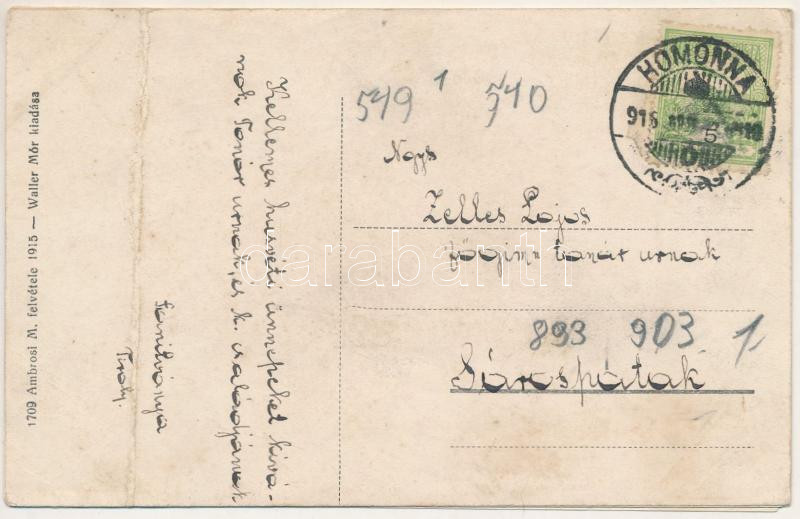 1709 Ambrosi M. felvétele 1915 — Waller Mór kiadása
Kellemes husvéti ünnepeket kivá-
nok Tanár urnak, és k. családjának
Tanitványa
Tiroly.
549 1 540
HOMONNA
916
5
Nagys
Zelles Lajos
főgimn tanár urnak
893 903 1
Sárospatak
darabanth.com